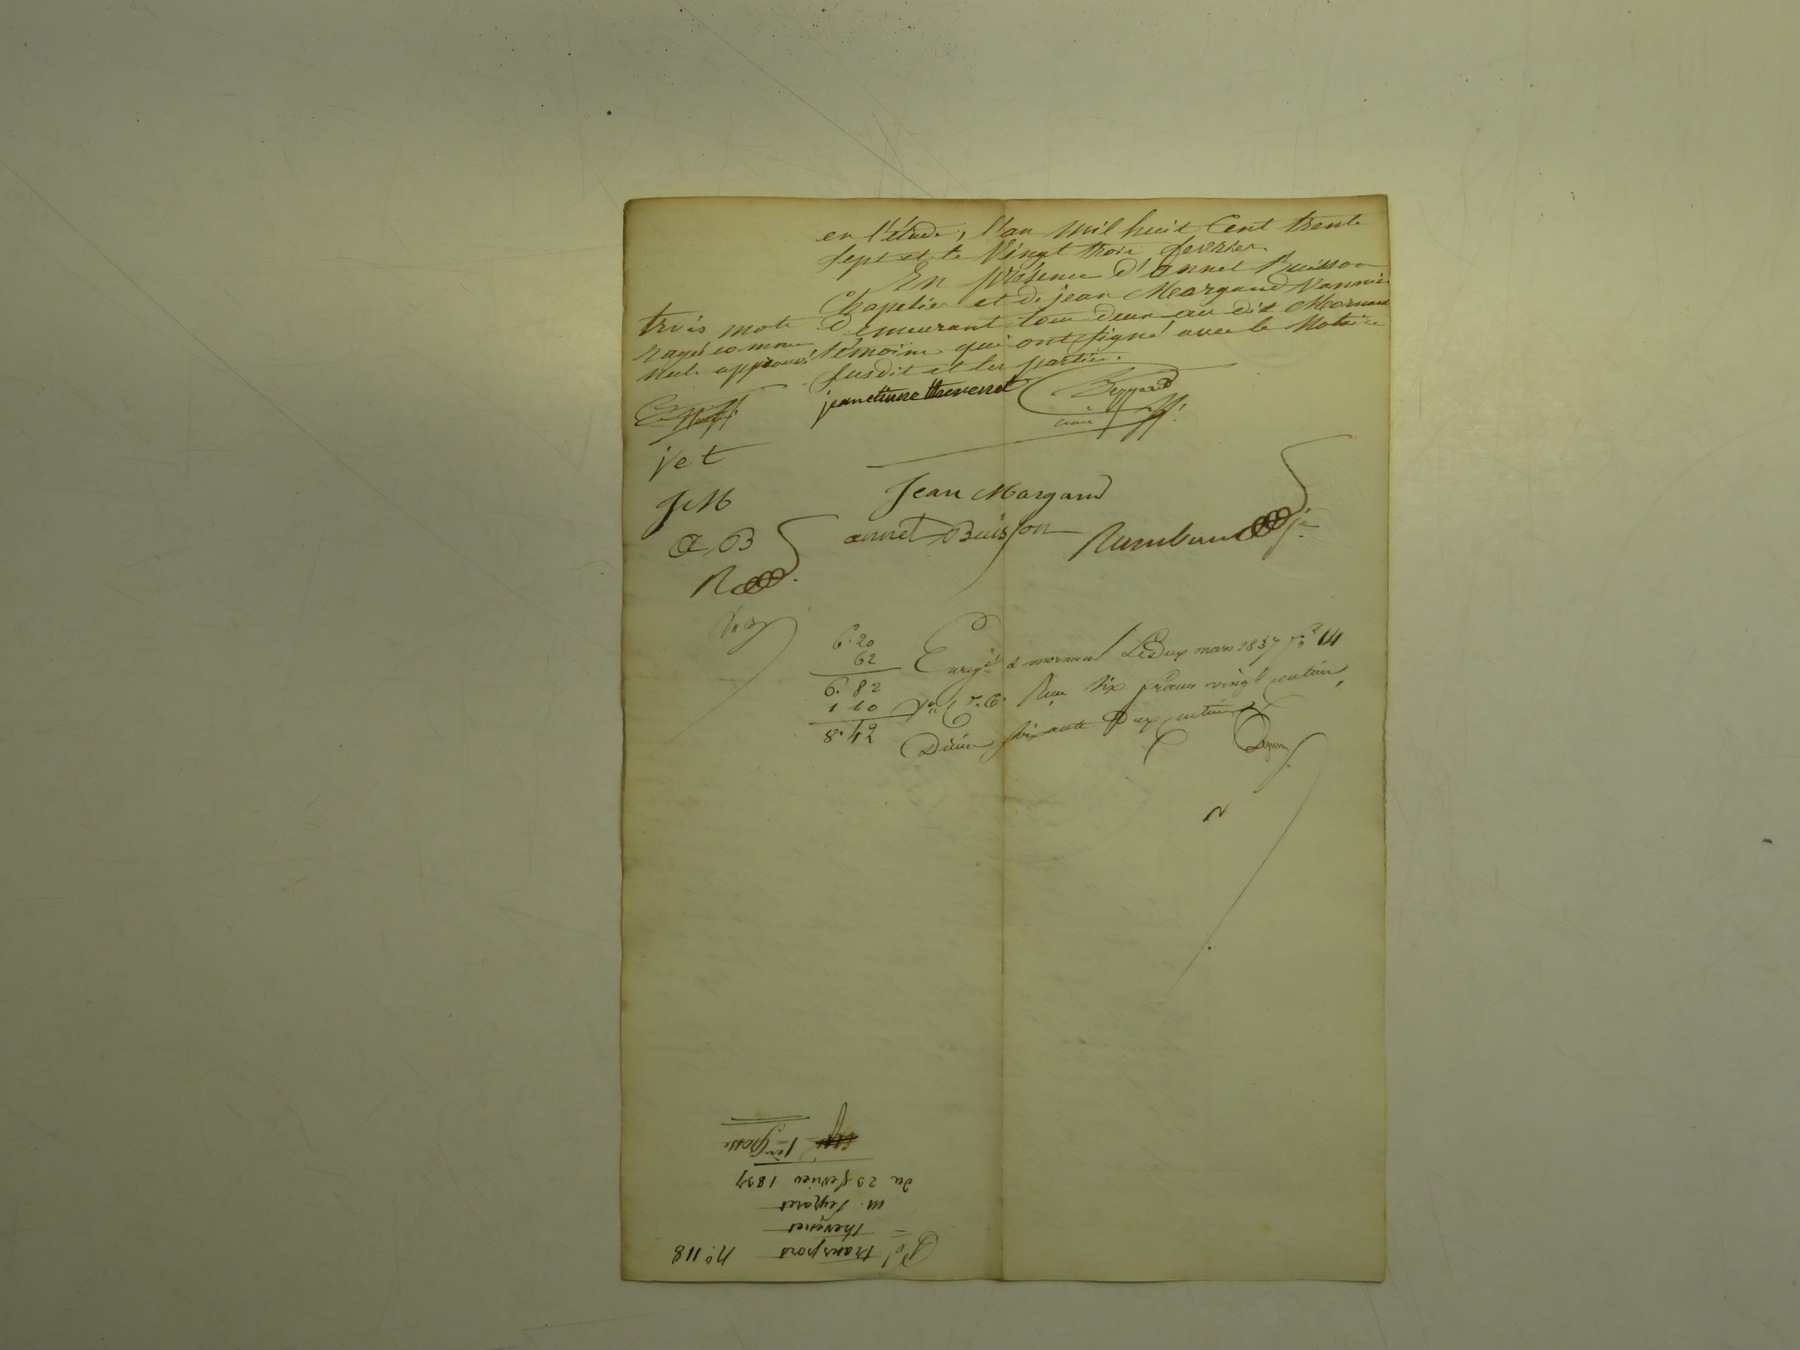 en l'étude, l'an mil huit Cent trente
sept et le vingt trois fevrier
En présence d'annet Buisson
Chapelier et de jean Margand Vannier
demeurant tous deux au dit Mornant
témoins qui ont signé avec le Notaire
susdit et les parties.
trois mots
rayés comme
nuls approuvés
jean etienne thevenet
jet
JM
A,B
R
Jean Margand
annet Buisson
6.20
62
6.82
1 60
8.42
Enregé à mornant Le Dix mars 1837 fo 14
vo C. 6. Reçu six francs vingt centimes,
Dixime soixante Deux centimes
Pd transport No 118
thevenet
m.
du 23 fevrier 1837
1ere Grosse